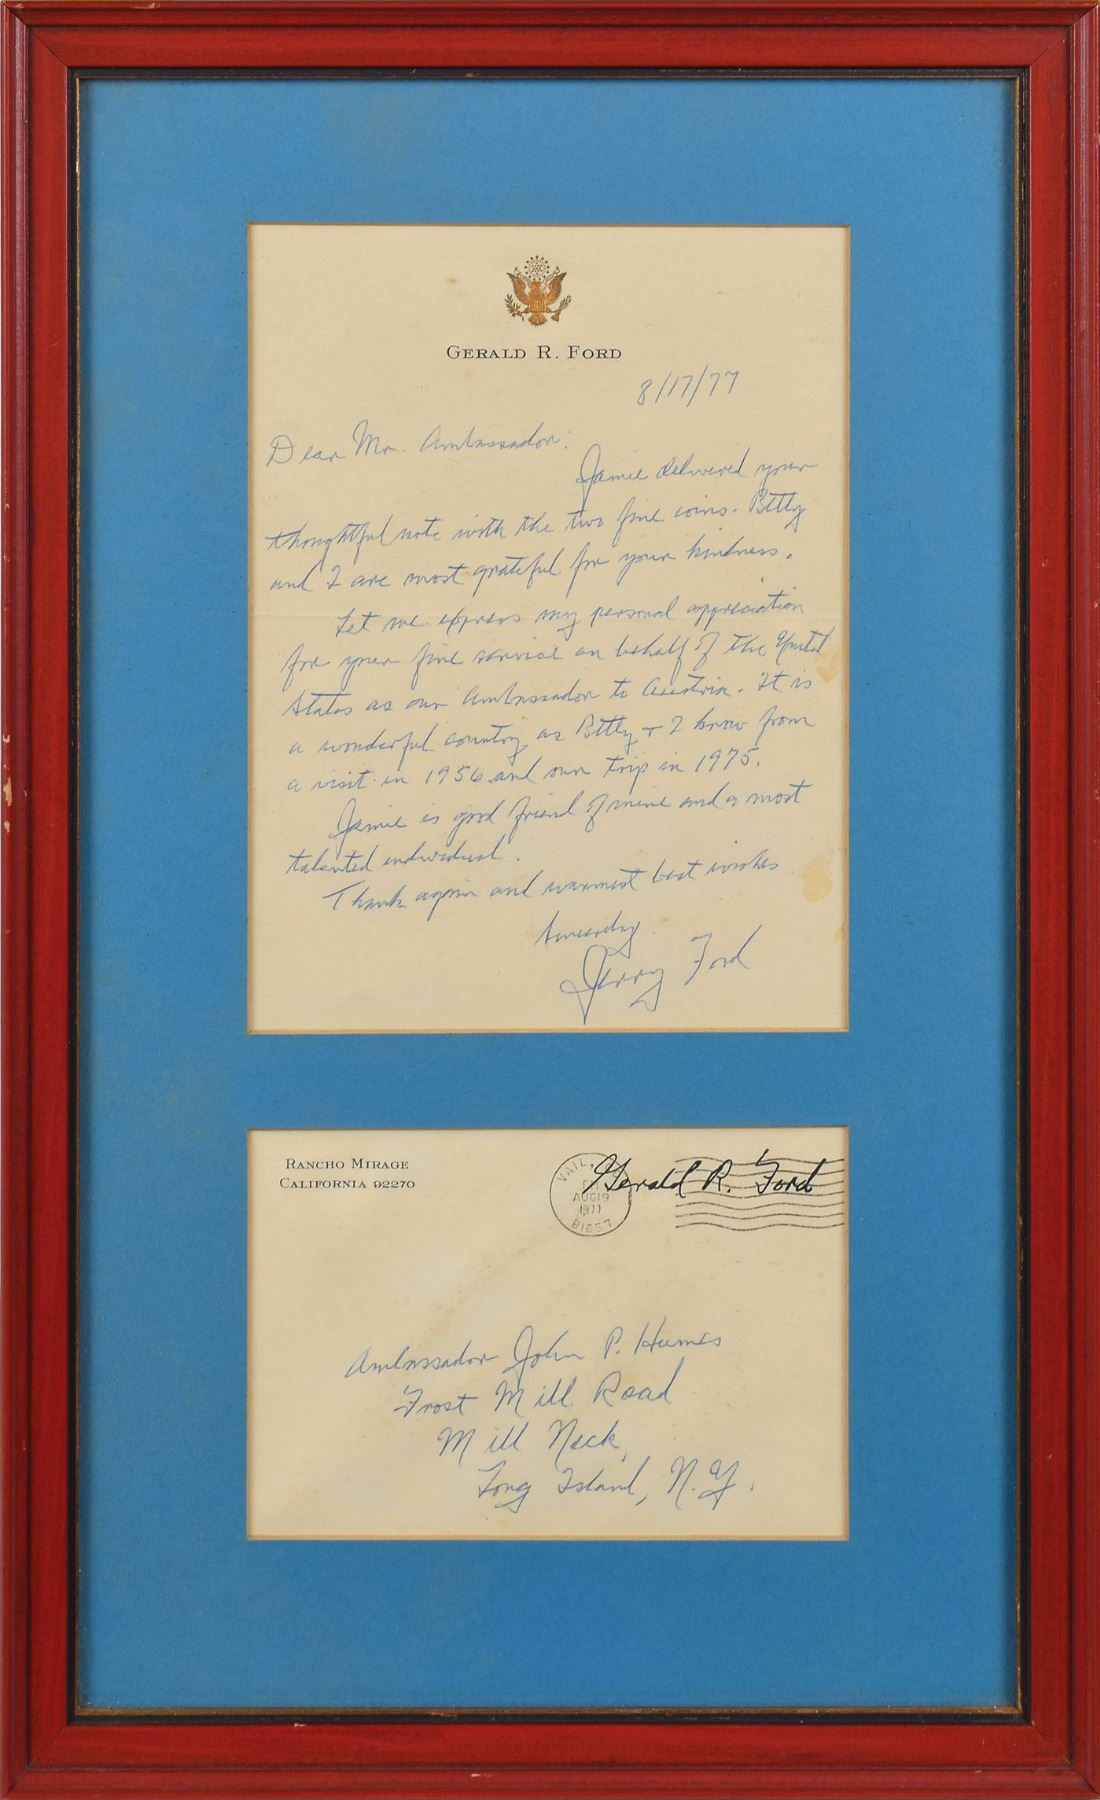 GERALD R. FORD
8/17/77
Dear Mr. Ambassador:
Jamie delivered your
thoughtful note with the two fine coins. Betty
and I are most grateful for your kindness.
Let me express my personal appreciation
for your fine service on behalf of the United
States as our Ambassador to Austria. It is
a wonderful country as Betty + I know from
a visit in 1956 and our trip in 1975.
Jamie is good friend of mine and a most
talented individual.
Thank again and warmest best wishes
Sincerely
Jerry Ford
RANCHO MIRAGE
CALIFORNIA 92270
VAIL,
AUG 19
1977
81657
Gerald R. Ford
Ambassador John P. Humes
Frost Mill Road
Mill Neck,
Long Island, N.Y.